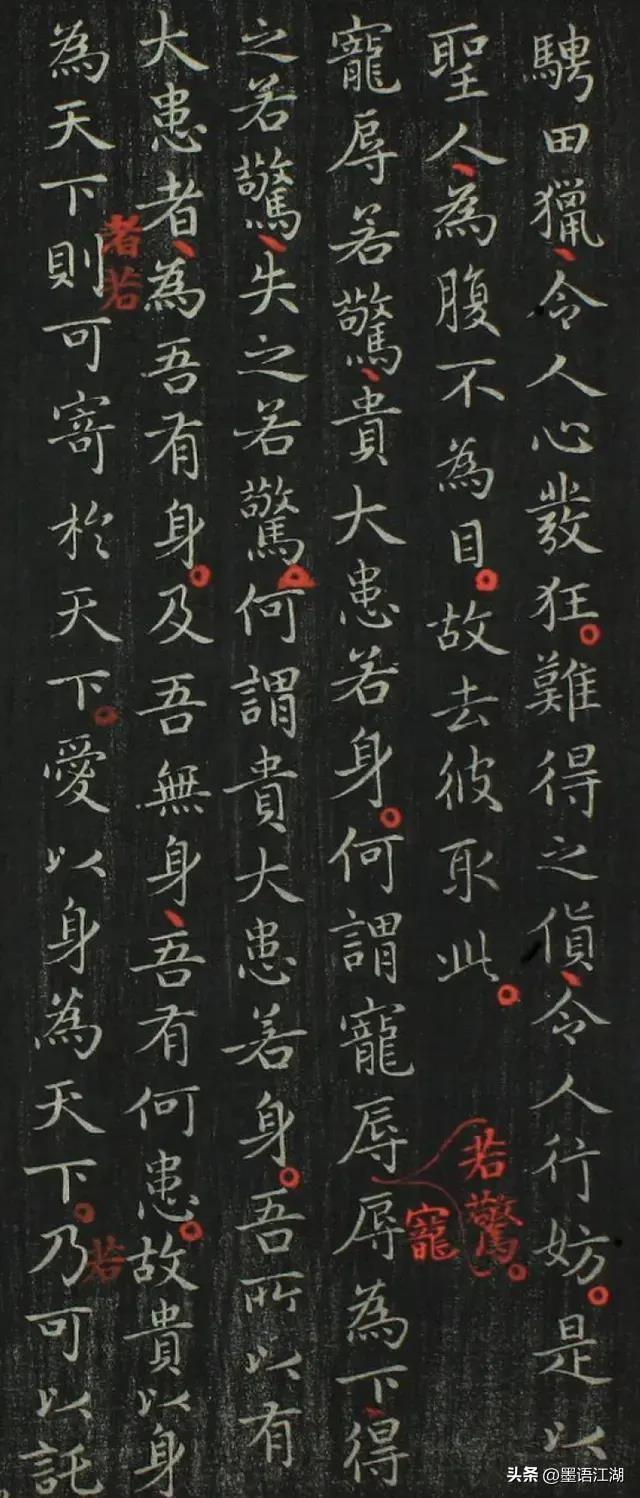 騁田獵令人心發狂難得之貨令人行妨是以
聖人為腹不為目故去彼取此
若驚
寵
寵辱若驚貴大患若身何謂寵辱辱為下得
之若驚失之若驚何謂貴大患若身吾所以有
大患者為吾有身及吾無身吾有何患故貴以身
者若
若
為天下則可寄於天下愛以身為天下乃可以託
头条 @墨语江湖